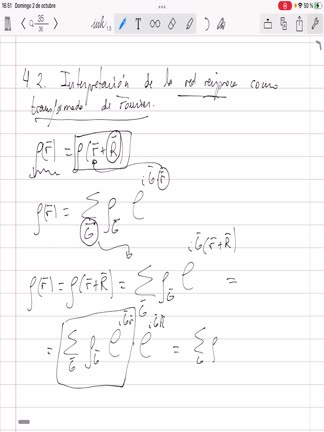 16:51 Domingo 2 de octubre
50 %
35
36
4.2. Interpretación de la red recíproca como
transformada de Fourier.
ρ(r̄) = ρ(r̄+R̄)
ρ(r̄) = Σ_Ḡ ρ_Ḡ e^{iḠ·r̄}
ρ(r̄) = ρ(r̄+R̄) = Σ_Ḡ ρ_Ḡ e^{iḠ(r̄+R̄)} =
= Σ_Ḡ ρ_Ḡ e^{iḠr̄} · e^{iḠR̄} = Σ_G ρ